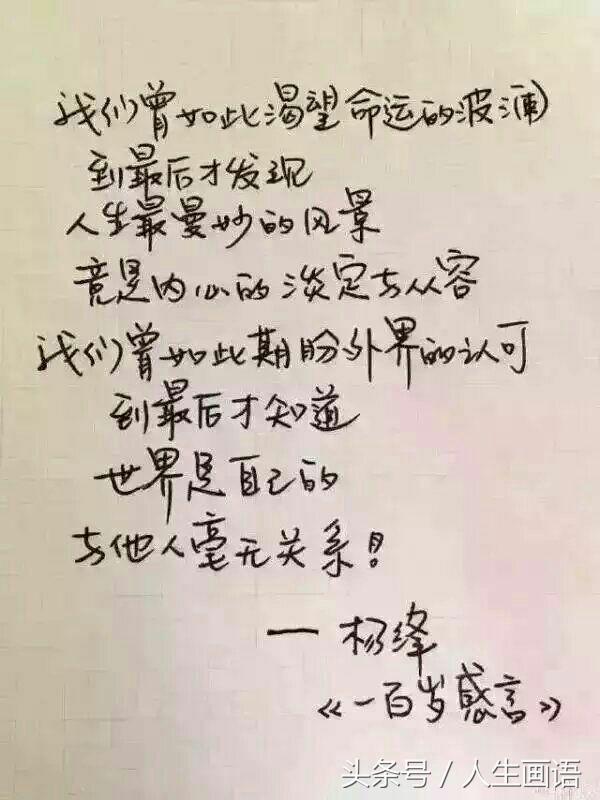 我们曾如此渴望命运的波澜
到最后才发现
人生最曼妙的风景
竟是内心的淡定与从容
我们曾如此期盼外界的认可
到最后才知道
世界是自己的
与他人毫无关系！
— 杨绛
《一百岁感言》
头条号 / 人生画语